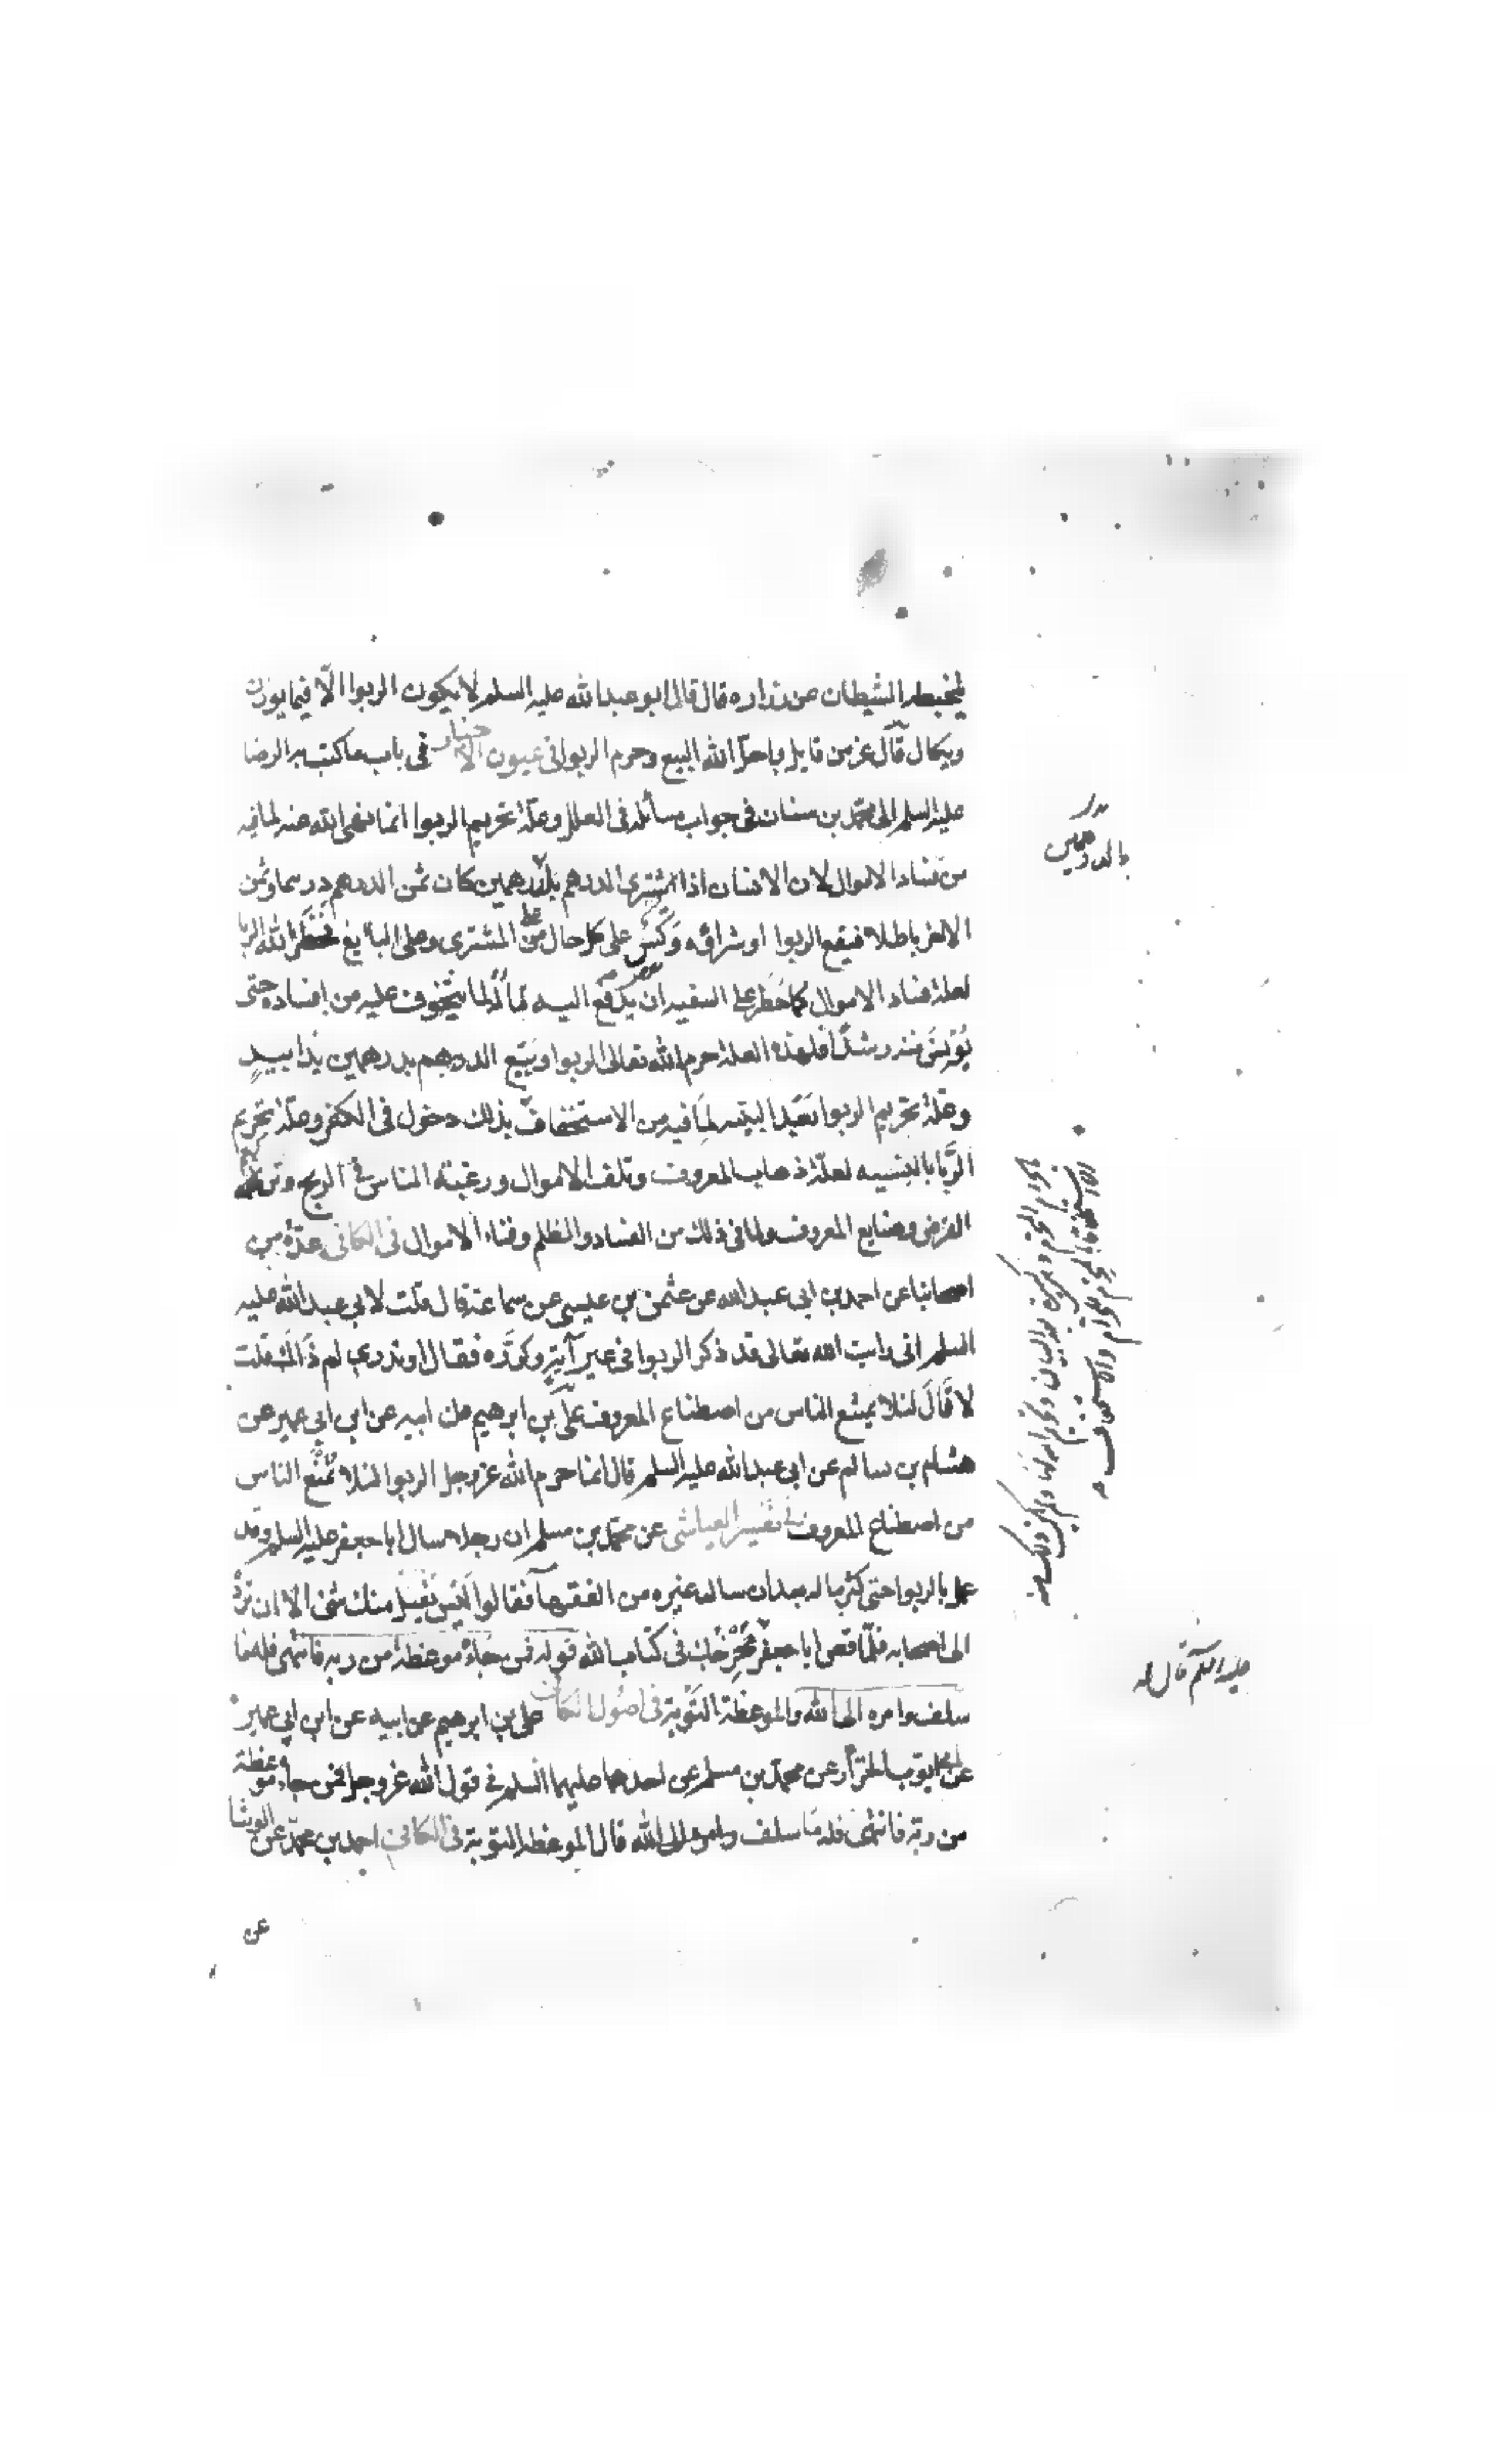 يتخبطه الشيطان عن زراره قال قال ابو عبد الله عليه السلم لا يكون الربوا الّا فيما يوزن
ويكال قال عز من قايل واحل الله البيع وحرم الربوا فى عيون الاخبار فى باب ما كتب به الرضا
عليه السلم الى محمد بن سنان فى جواب مسائله فى العلل وعلة تحريم الربوا انما نهى الله عنه لما فيه
من فساد الاموال لان الانسان اذا اشترى الدرهم بالدرهمين كان ثمن الدرهم درهما وثمن
الاخر باطلا فبيع الربوا وشراؤه وكس على كل حال على المشترى وعلى البايع فحظر الله الربا
لعلة فساد الاموال كما حظر على السفيه ان يدفع اليه ماله لما يتخوف عليه من افساده حتى
يؤنس منه رشدا فلهذه العلة حرم الله تعالى الربوا وبيع الدرهم بدرهمين يدا بيد
وعلة تحريم الربوا بعد البينه لما فيه من الاستخفاف بذلك دخول فى الكفر وعلة تحريم
الربا بالنسيه لعلة ذهاب المعروف وتلف الاموال ورغبة الناس فى الربح وتركهم
القرض وصنايع المعروف ولما فى ذلك من الفساد والظلم وفناء الاموال فى الكافى عدة من
اصحابنا عن احمد بن ابى عبد الله عن عثمن بن عيسى عن سماعة قال قلت لابى عبد الله عليه
السلم انى رايت الله تعالى قد ذكر الربوا فى غير آية وكرّره فقال اوتدري لم ذلك قلت
لا قال لئلا يمتنع الناس من اصطناع المعروف على بن ابرهيم عن ابيه عن ابن ابي عمير عن
هشام بن سالم عن ابى عبد الله عليه السلم قال انما حرم الله عز وجل الربوا لئلا تمتنع الناس
من اصطناع المعروف فى تفسير العياشى عن محمد بن مسلم ان رجلا سال ابا جعفر عليه السلم وقد
عمل بالربوا حتى كثر ماله بعد ان سال غيره من الفقهآ فقالوا ليس يقبل منك شئ الا ان ترد
الى اصحابه فلما قص ابا جعفر مخرجك فى كتاب الله قوله فمن جاءه موعظة من ربه فانتهى فله ما
سلف وامره الى الله والموعظة التوبة فى اصول الكافى على بن ابرهيم عن ابيه عن ابن ابى عمير
عن ابى ايوب الخزاز عن محمد بن مسلم عن احدهما عليهما السلم فى قول الله عز وجل فمن جاءه موعظة
من ربه فانتهى فله ما سلف وامره الى الله قال الموعظة التوبة فى الكافى احمد بن محمد عن الوشا
عن
بالدرهمين
عليه السلم قال له